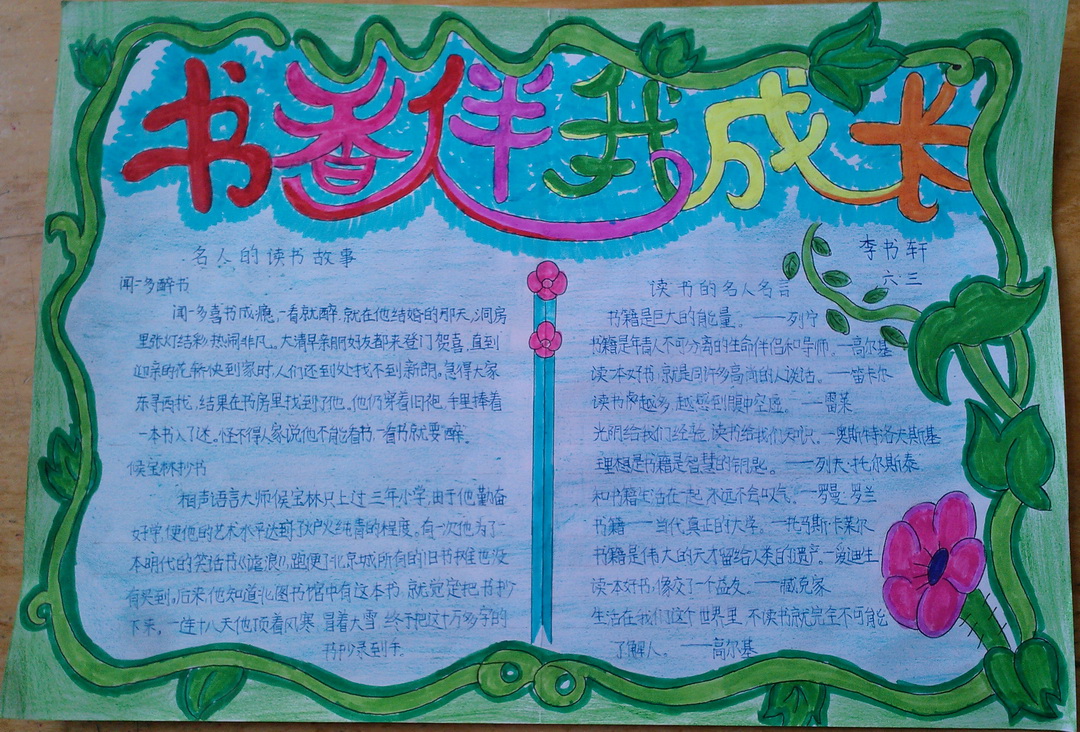 书香伴我成长
名人的读书故事
闻一多醉书
闻一多喜书成瘾,一看就醉,就在他结婚的那天,洞房
里张灯结彩,热闹非凡。大清早亲朋好友都来登门贺喜,直到
迎亲的花轿快到家时,人们还到处找不到新郎。急得大家
东寻西找,结果在书房里找到了他。他仍穿着旧袍,手里捧着
一本书入了迷。怪不得人家说他不能看书,一看书就要“醉”。
侯宝林抄书
相声语言大师侯宝林只上过三年小学,由于他勤奋
好学,使他的艺术水平达到了炉火纯青的程度。有一次他为了一
本明代的笑话书《谑浪》,跑便了北京城所有的旧书摊也没
有买到。后来,他知道北图书馆中有这本书,就觉定把书抄
下来。一连十八天他顶着风寒,冒着大雪,终于把这十万多字的
书抄录到手。
李书轩
六.三
读书的名人名言
书籍是巨大的能量。——列宁
书籍是年青人不可分离的生命伴侣和导师。—高尔基
读一本好书,就是同许多高尚的人谈话。—笛卡尔
读书越多,越感到腹中空虚。——雷莱
光阴给我们经验,读书给我们知识。—奥斯特洛夫斯基
理想是书籍是智慧的钥匙。——列夫·托尔斯泰
和书籍生活在一起,永远不会叹气。—罗曼·罗兰
书籍——当代真正的大学。—托马斯·卡莱尔
书籍是伟大的天才留给人类的遗产。—爱迪生
读一本好书,像交了一个益友。——臧克家
生活在我们这个世界里,不读书就完全不可能
了解人。——高尔基